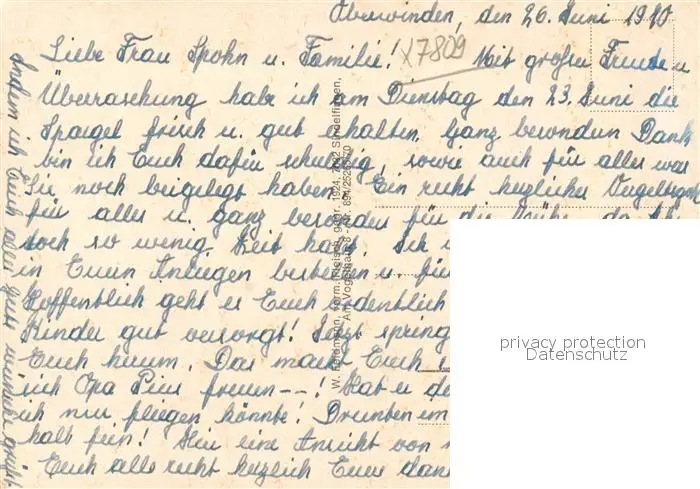 Oberwinden, den 26. Juni 1970
Liebe Frau Spohn u. Familie! Mit großer Freude u.
Überraschung habe ich am Dienstag den 23. Juni die
Spargel frisch u. gut erhalten. Ganz besondern Dank
bin ich Euch dafür schuldig, sowie auch für alles was
Sie noch beigelegt haben. Ein recht herzliches Vergeltsgott
für alles u. ganz besonders für die Mühe, da
doch so wenig Zeit habt. Ich
in Euern Anliegen u. für
Hoffentlich geht es Euch ordentlich
Kinder gut versorgt! Jetzt spring
Euch herum. Das macht Euch
sich Opa Pius freuen --! Hat er
ich nur fliegen könnte! Drunten im
halb fein! Hier eine Ansicht von
Euch alle recht herzlich Eure dank
Indem ich Euch allen
17809
W. Feldmann, vorm. Kleisch, gegr. 1924, 7032 Sindelfingen,
Am Vogelhain 8
privacy protection
Datenschutz